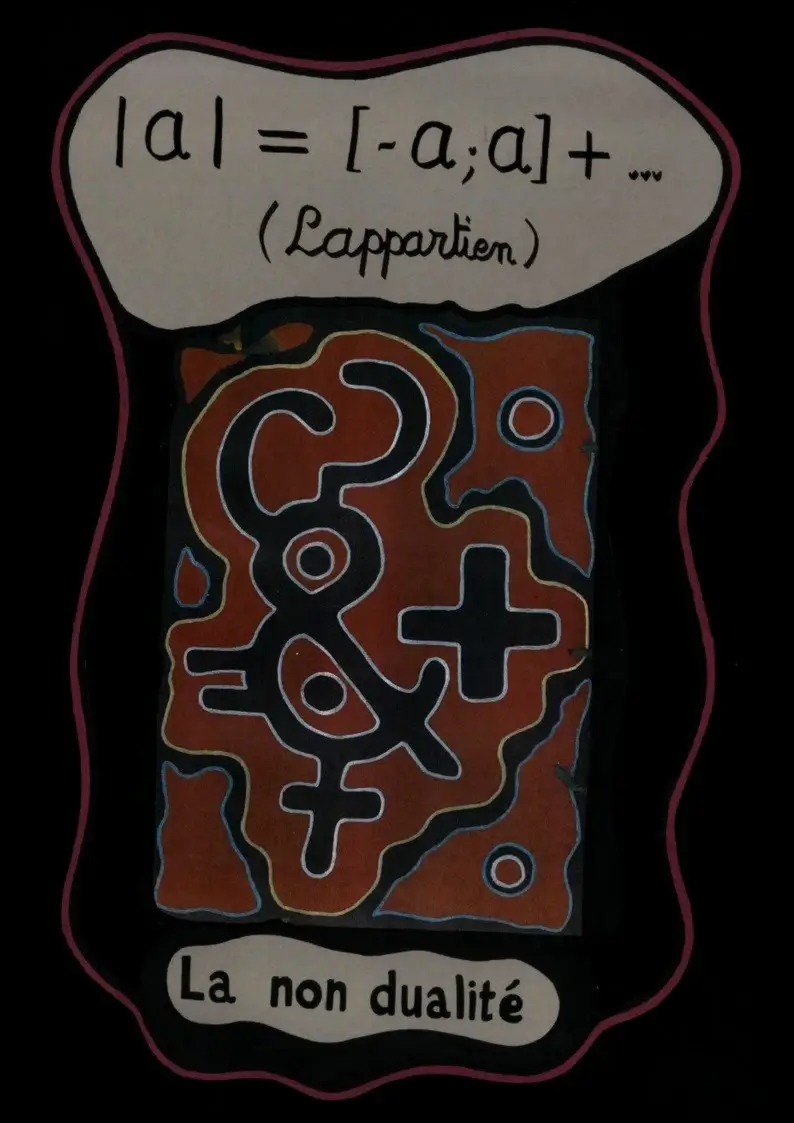 |a| = [-a;a] + ...
(Lappartien)
&
+
La non dualité